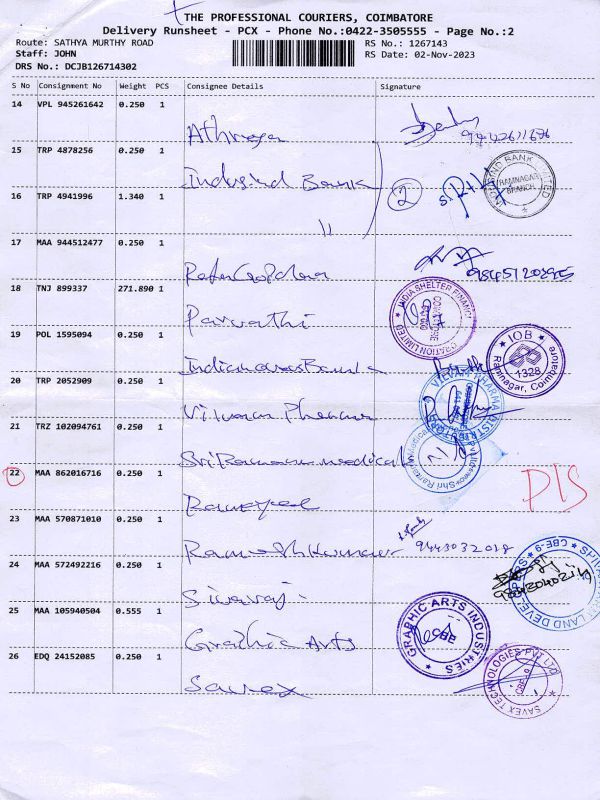 THE PROFESSIONAL COURIERS, COIMBATORE
Delivery Runsheet - PCX - Phone No.:0422-3505555 - Page No.:2
Route: SATHYA MURTHY ROAD
RS No.: 1267143
Staff: JOHN
RS Date: 02-Nov-2023
DRS No.: DCJB126714302
S No Consignment No Weight PCS Consignee Details Signature
14 VPL 945261642 0.250 1
Athreya
15 TRP 4878256 0.250 1
Indusind Bank
2
INDUSIND BANK LIMITED
RAMNAGAR BRANCH
16 TRP 4941996 1.340 1
"
17 MAA 944512477 0.250 1
18 TNJ 899337 271.890 1
Parvathi
INDIA SHELTER FINANCE CORPORATION LIMITED
19 POL 1595094 0.250 1
Indian overs Bank
IOB
1328
Ramnagar, Coimbatore
20 TRP 2052909 0.250 1
21 TRZ 102094761 0.250 1
Sri Ramana medicals
22 MAA 862016716 0.250 1
DIS
23 MAA 570871010 0.250 1
Ramesh Kumar
9443032018
24 MAA 572492216 0.250 1
Sivaraj
25 MAA 105940504 0.555 1
Graphic Arts
GRAPHIC ARTS INDUSTRIES
CBE
26 EDQ 24152085 0.250 1
Savex
SAVEX TECHNOLOGIES PVT Ltd